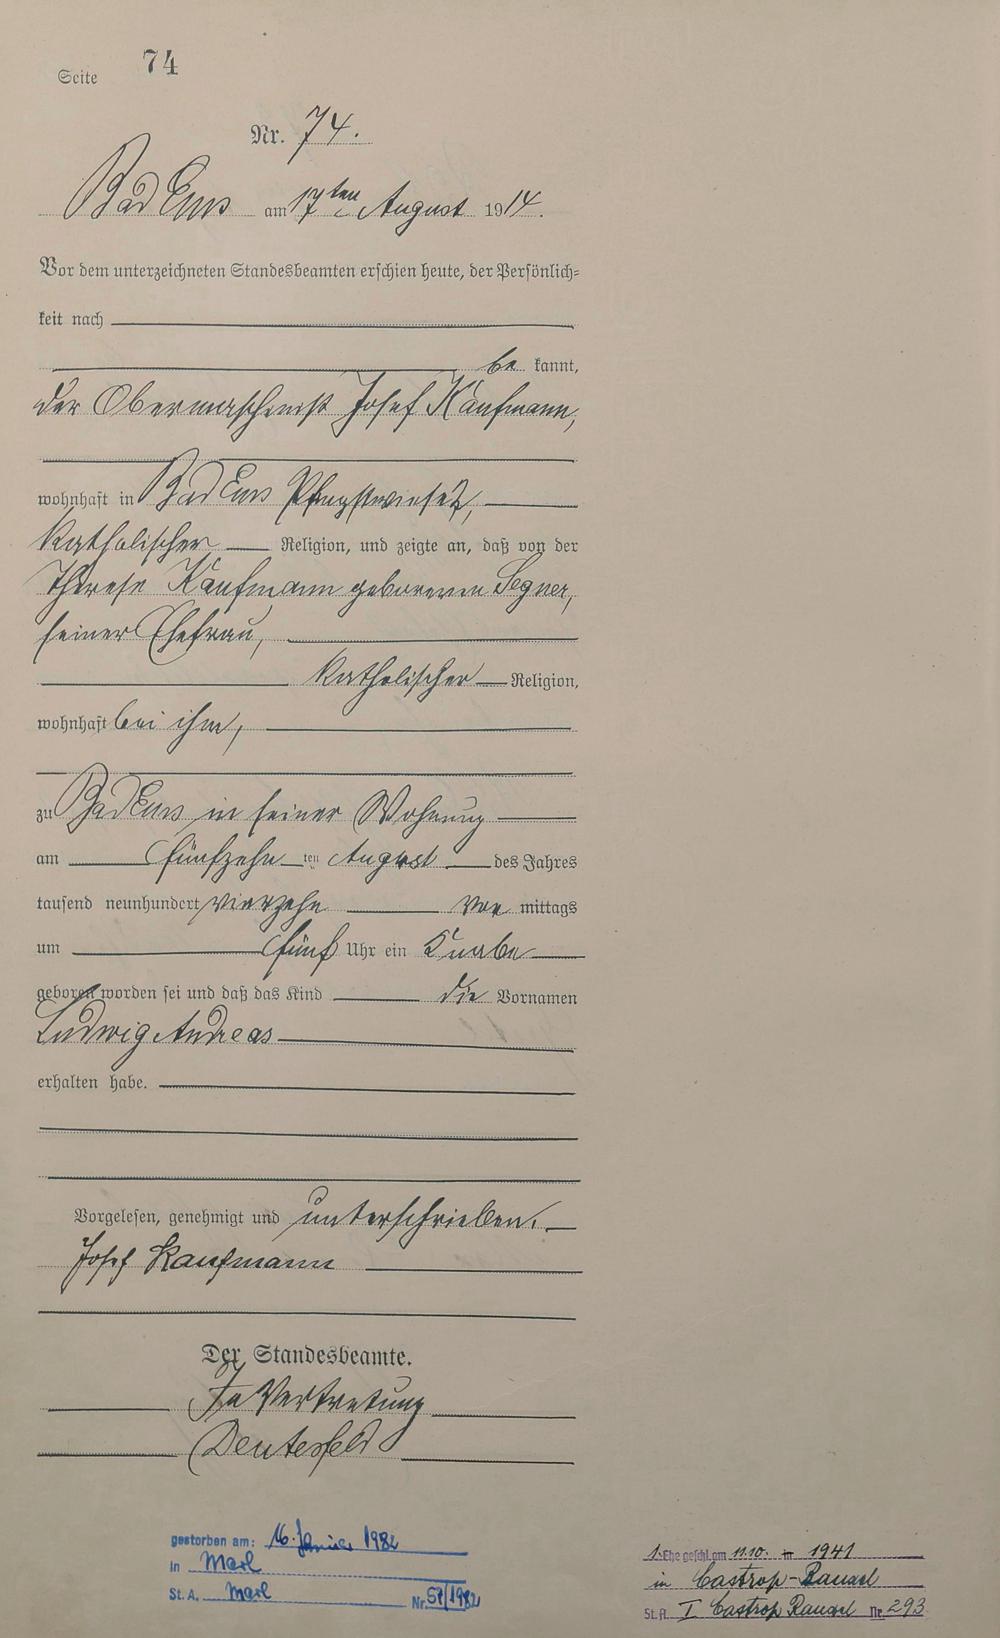 Seite 74
Nr. 74.
Bad Ems am 17ten August 1914.
Vor dem unterzeichneten Standesbeamten erschien heute, der Persönlich-
keit nach
be kannt,
der Obermaschinist Josef Kaufmann,
wohnhaft in Bad Ems
katholischer Religion, und zeigte an, daß von der
Therese Kaufmann geborenen Segner,
seiner Ehefrau,
katholischer Religion,
wohnhaft bei ihm,
zu Bad Ems in seiner Wohnung
am fünfzehn ten August des Jahres
tausend neunhundert vierzehn Vor mittags
um fünf Uhr ein Knabe
geboren worden sei und daß das Kind die Vornamen
Ludwig Andreas
erhalten habe.
Vorgelesen, genehmigt und unterschrieben.
Josef Kaufmann
Der Standesbeamte.
In Vertretung
gestorben am: 16. Januar 1982
in Marl
St. A. Marl Nr. 57/1982
1. Ehe geschl. am 11.10. 1941
in Castrop-Rauxel
St. A. I Castrop Rauxel Nr. 293